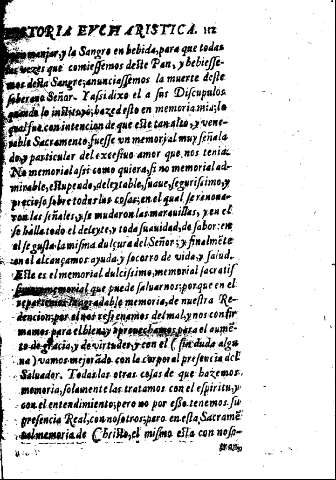 HISTORIA EVCHARISTICA. 112
manjar, y la Sangre en bebida, para que todas
las vezes que comiessemos deste Pan, y bebiesse-
mos desta Sangre; anunciassemos la muerte deste
soberano Señor. Y assi dixo el a sus Discipulos
quando lo instituyò; hazed esto en memoria mia; lo
qual fue con intencion de que este tan alto, y vene-
rable Sacramento, fuesse vn memorial muy señala
do, y particular del excessiuo amor que nos tenia.
No memorial assi como quiera, si no memorial ad-
mirable, estupendo, deleytable, suaue, segurissimo, y
precioso sobre todas las cosas; en el qual se renoua-
ron las señales, y se mudaron las marauillas, y en el
se halla todo el deleyte, y toda suauidad, de sabor: en
el se gusta la misma dulçura del Señor; y finalmẽte
en el alcançamos ayuda, y socorro de vida, y salud.
Este es el memorial dulcissimo, memorial sacratis
memorial que puede saluarnos: porque en el
agradable memoria, de nuestra Re-
dencion: por el nos refrenamos del mal, y nos confir
mamos para el bien, y aprouechamos para el aumẽ-
to de gracia, y de virtudes, y con el ( sin duda algu
na ) vamos mejorãdo con la corporal presencia del
Saluador. Todas las otras cosas de que hazemos
memoria, solamente las tratamos con el espiritu, y
con el entendimiento; pero no por esso tenemos su
presencia Real, con nosotros; pero en esta Sacramẽ
tal memoria de Christo, el mismo esta con noso-